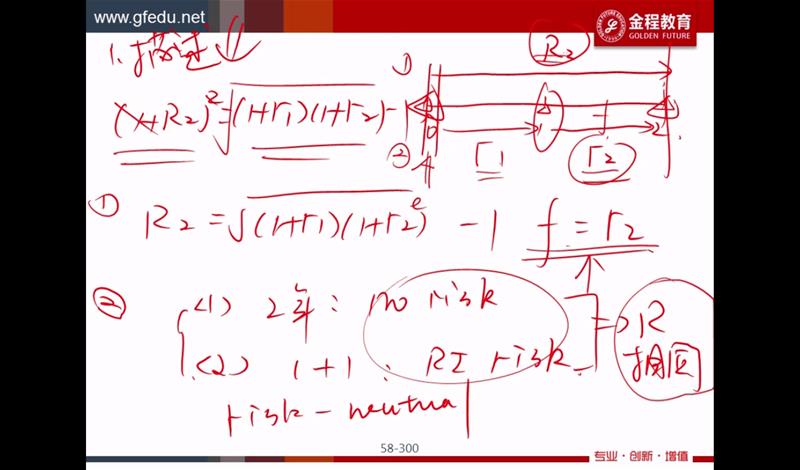 www.gfedu.net
金程教育
GOLDEN FUTURE
1. 描述
R₂
①
(1+R₂)² = √(1+r₁)(1+r₂) - 1
0 1 2
f
② A r₁ r₂
① R₂ = √(1+r₁)(1+r₂)ᵉ - 1 f = r₂
② (1) 2年: no risk
⇒ R 相同
(2) 1+1: RI risk
risk-neutral
58-300
专业·创新·增值